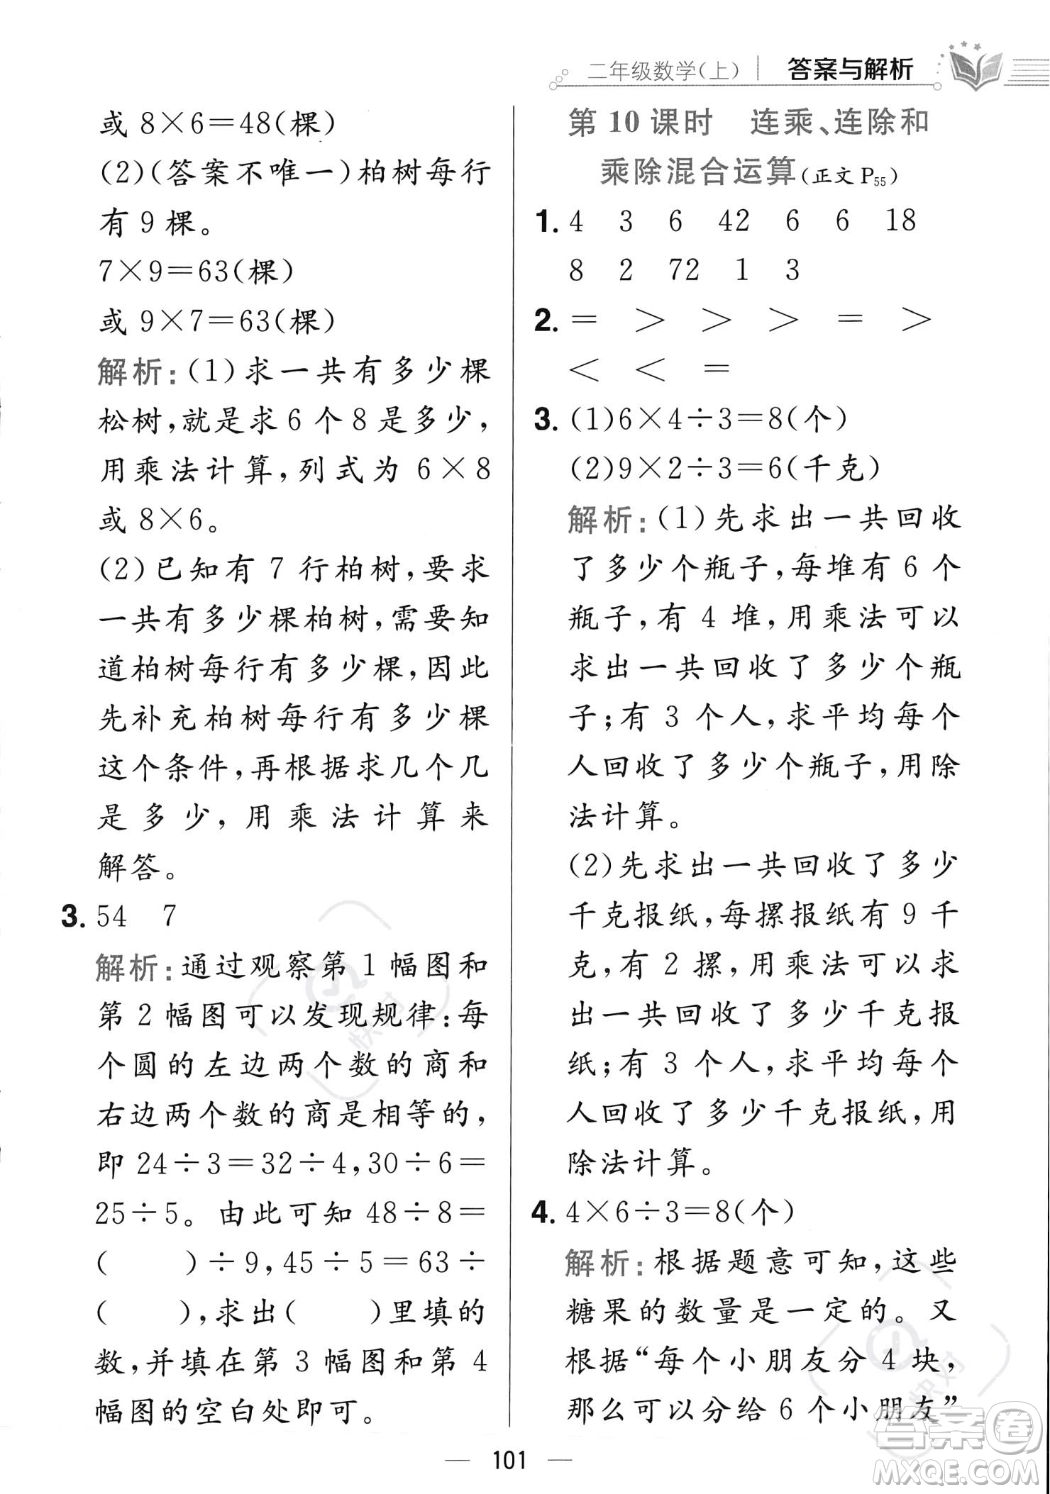 二年级数学(上) 答案与解析
或 8×6=48(棵)
(2)(答案不唯一)柏树每行
有 9 棵。
7×9=63(棵)
或 9×7=63(棵)
解析:(1)求一共有多少棵
松树,就是求 6 个 8 是多少,
用乘法计算,列式为 6×8
或 8×6。
(2)已知有 7 行柏树,要求
一共有多少棵柏树,需要知
道柏树每行有多少棵,因此
先补充柏树每行有多少棵
这个条件,再根据求几个几
是多少,用乘法计算来
解答。
3. 54 7
解析:通过观察第 1 幅图和
第 2 幅图可以发现规律:每
个圆的左边两个数的商和
右边两个数的商是相等的,
即 24÷3=32÷4,30÷6=
25÷5。由此可知 48÷8=
( )÷9,45÷5=63÷
( ),求出( )里填的
数,并填在第 3 幅图和第 4
幅图的空白处即可。
第 10 课时 连乘、连除和
乘除混合运算(正文 P55)
1. 4 3 6 42 6 6 18
8 2 72 1 3
2. = > > > = >
< < =
3. (1)6×4÷3=8(个)
(2)9×2÷3=6(千克)
解析:(1)先求出一共回收
了多少个瓶子,每堆有 6 个
瓶子,有 4 堆,用乘法可以
求出一共回收了多少个瓶
子;有 3 个人,求平均每个
人回收了多少个瓶子,用除
法计算。
(2)先求出一共回收了多少
千克报纸,每摞报纸有 9 千
克,有 2 摞,用乘法可以求
出一共回收了多少千克报
纸;有 3 个人,求平均每个
人回收了多少千克报纸,用
除法计算。
4. 4×6÷3=8(个)
解析:根据题意可知,这些
糖果的数量是一定的。又
根据“每个小朋友分 4 块,
那么可以分给 6 个小朋友”
101
快对
快对
答案圈
MXQE.COM